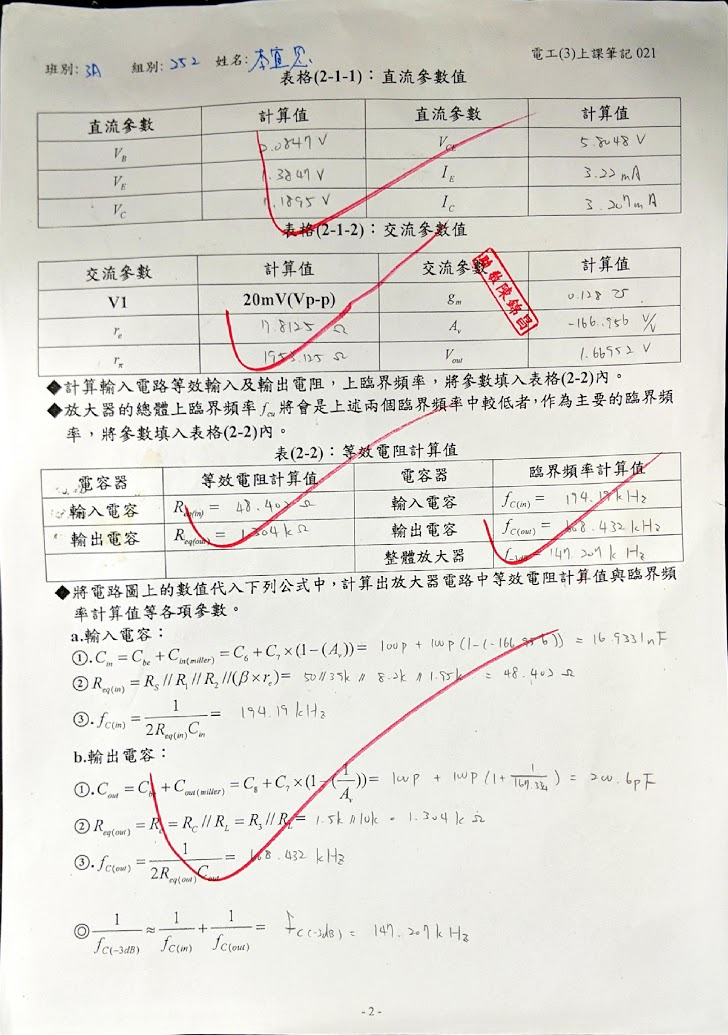 班別: 3A 組別: 252 姓名: 李宜恩 電工(3)上課筆記 021
表格(2-1-1)：直流參數值
直流參數 計算值 直流參數 計算值
V_B 2.0847 V V_CE 5.8048 V
V_E 1.3847 V I_E 3.22 mA
V_C 7.1895 V I_C 3.207 mA
表格(2-1-2)：交流參數值
交流參數 計算值 交流參數 計算值
V1 20mV(Vp-p) g_m 0.128 ℧
r_e 7.8125 Ω A_v -166.956 V/V
r_π 1953.125 Ω V_out 1.66952 V
助教陳錦昌
◆計算輸入電路等效輸入及輸出電阻，上臨界頻率，將參數填入表格(2-2)內。
◆放大器的總體上臨界頻率 f_cu 將會是上述兩個臨界頻率中較低者，作為主要的臨界頻
率，將參數填入表格(2-2)內。
表(2-2)：等效電阻計算值
電容器 等效電阻計算值 電容器 臨界頻率計算值
輸入電容 R_eq(in) = 48.402 Ω 輸入電容 f_C(in) = 194.19 kHz
輸出電容 R_eq(out) = 1.304 k Ω 輸出電容 f_C(out) = 608.432 kHz
整體放大器 f_-3dB = 147.207 k Hz
◆將電路圖上的數值代入下列公式中，計算出放大器電路中等效電阻計算值與臨界頻
率計算值等各項參數。
a.輸入電容：
①. C_in = C_be + C_in(miller) = C_6 + C_7×(1-(A_v)) = 100p + 100p (1-(-166.956)) = 16.9331nF
② R_eq(in) = R_S // R_1 // R_2 //(β×r_e) = 50//39k // 8.2k // 1.95k = 48.402 Ω
③. f_C(in) = 1/(2R_eq(in)C_in) = 194.19 kHz
b.輸出電容：
①. C_out = C_be + C_out(miller) = C_8 + C_7×(1-(1/A_v)) = 100p + 100p (1+ ) = 200.6pF
② R_eq(out) = R_c = R_C // R_L = R_3 // R_L = 1.5k//10k = 1.304 k Ω
③. f_C(out) = 1/(2R_eq(out)C_out) = 608.432 kHz
◎ 1/f_C(-3dB) ≈ 1/f_C(in) + 1/f_C(out) = f_C(-3dB) = 147.207k Hz
- 2 -